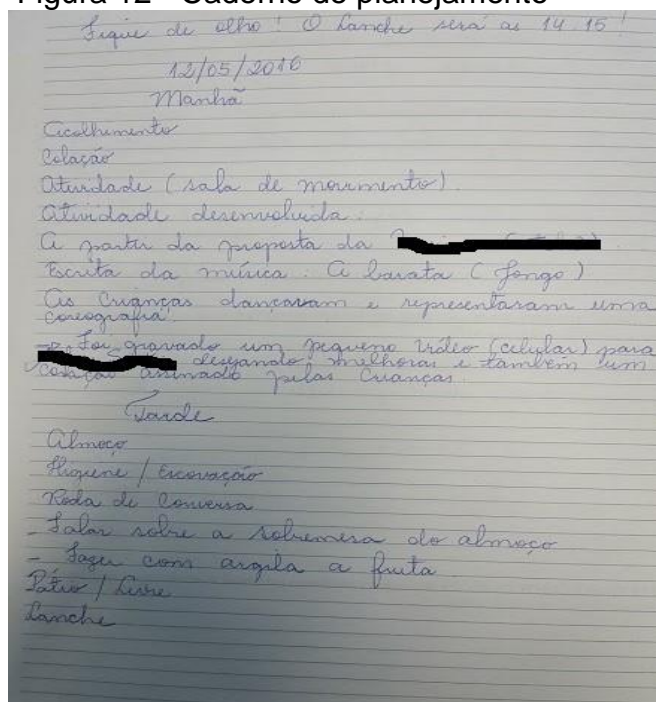 Figura 12 - Caderno de planejamento
Fique de olho! O lanche será as 14:15!
12/05/2016
Manhã
Acolhimento
Colação
Atividade (sala de movimento).
Atividade desenvolvida.
A partir da proposta da
Escrita da música: A barata (Jongo)
As Crianças dançaram e representaram uma
coreografia.
- Foi gravado um pequeno vídeo (celular) para
desejando melhoras e também um
coração assinado pelas Crianças.
Tarde
Almoço
Higiene / Escovação
Roda de Conversa
- Falar sobre a sobremesa do almoço
- Fazer com argila a fruta
Pátio / Livre
Lanche